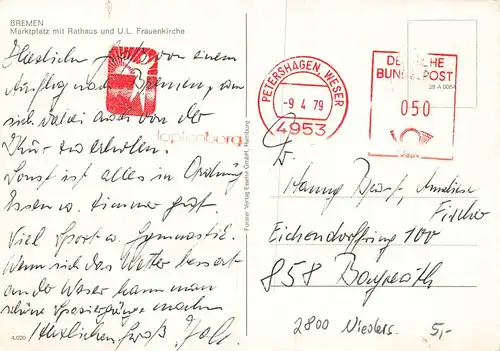 BREMEN
Marktplatz mit Rathaus und U.L. Frauenkirche
Herzlichen von einem
Ausflug nach Bremen, um
sich dabei auch von der
Kur zu erholen.
Sonst ist alles in Ordnung
Essen u. Zimmer gut
Viel Sport u. Gymnastik.
Wenn sich das Wetter bessert
an der Weser kann man
schöne Spaziergänge machen
Herzlichen Gruß
4.020
Forster Verlag Hamburg
PETERSHAGEN, WESER
-9.4.79
4953
DEUTSCHE
BUNDESPOST
050
28 A 6054
Anneliese
Fischer
Eichendorffring 100
858 Bayreuth
2800 Nieders. 5,-